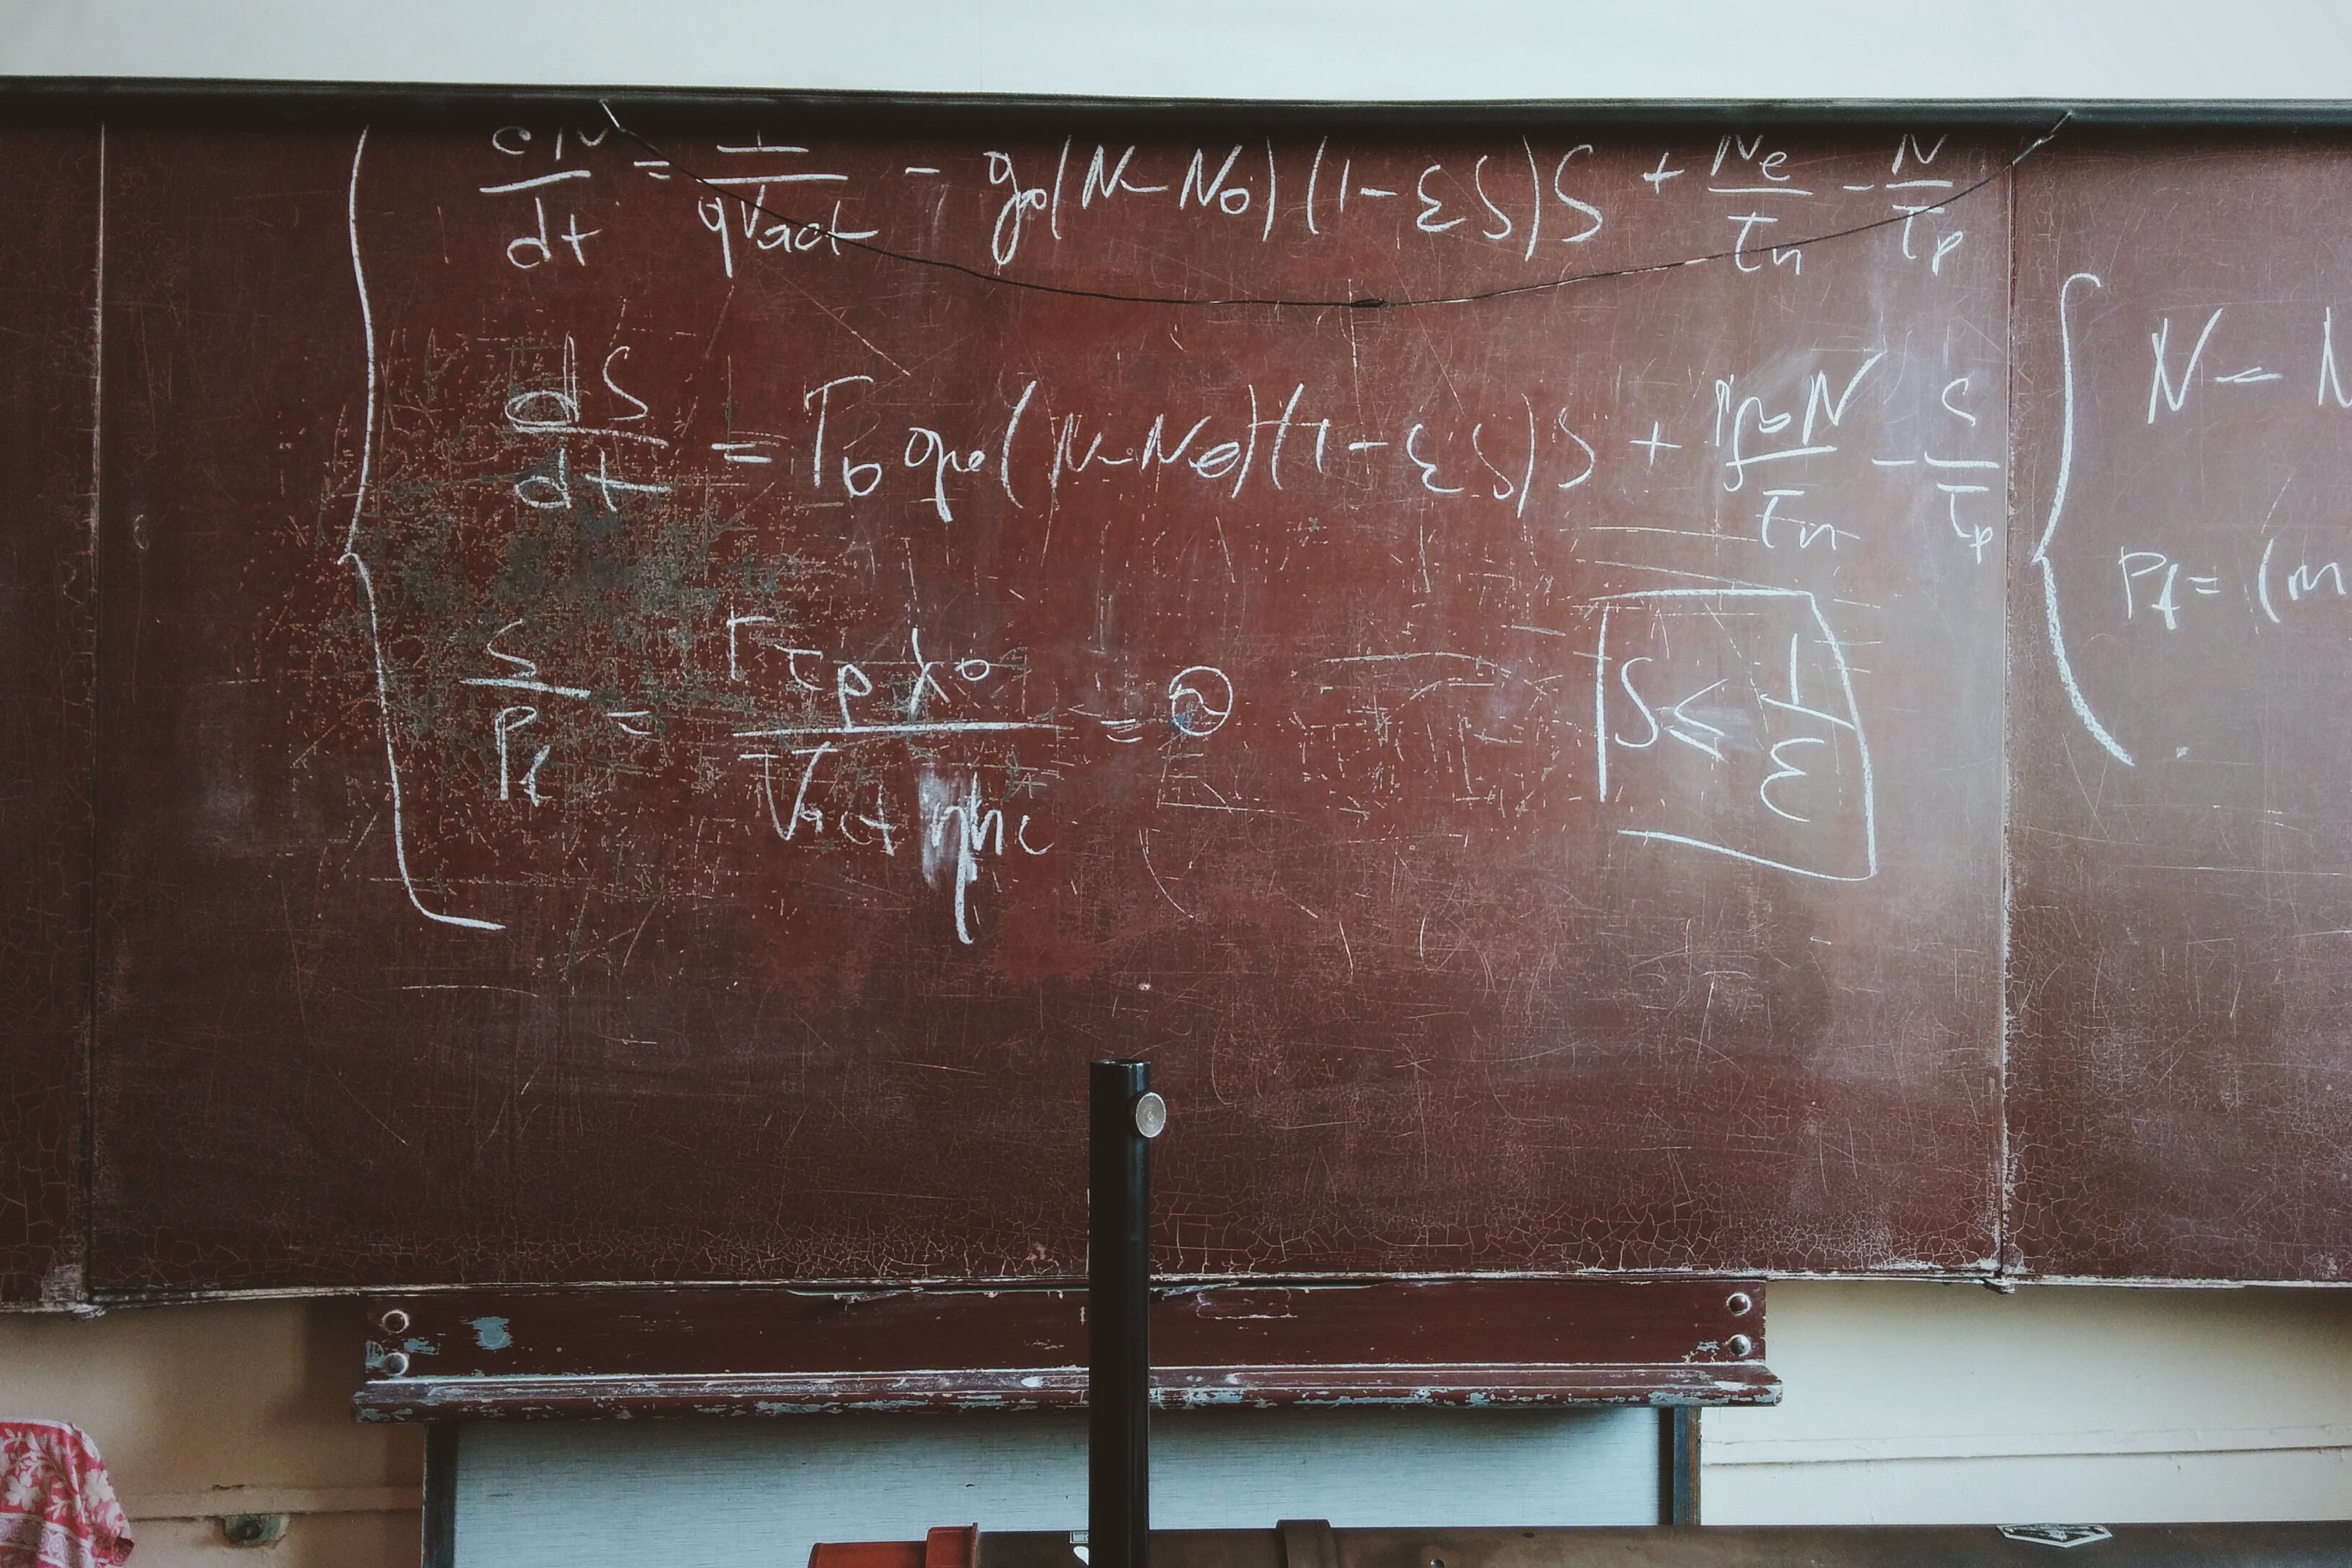 dN/dt = I/qVact - g₀(N-N₀)(1-εS)S + Ne/τn - N/τp
dS/dt = Γ₀ g₀(N-N₀)(1-εS)S + N/τn - S/τp
S/Pf = Γτpλ₀/Vact ηhc = ϑ
S ≤ 1/ε
N = N
Pf = (m